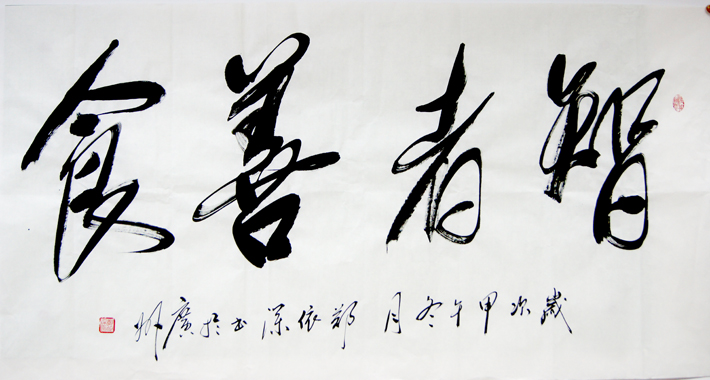 智者善食
歲次甲午冬月 鄭依深书於廣州